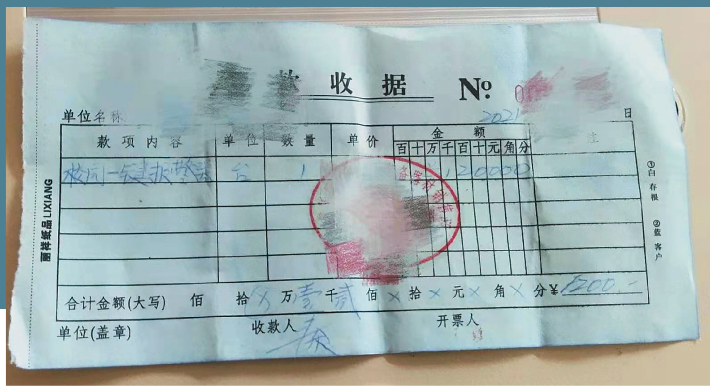 收 据 №
单位名称 2021 日
款项内容 单位 数量 单价 金额 注
百十万千百十元角分
校门一键报警 台 1 120000
合计金额(大写) 佰 拾 万壹千贰佰×拾×元×角×分¥1200.-
单位(盖章) 收款人 开票人
丽祥纸品 LIXIANG
①白 存根 ②蓝 客户